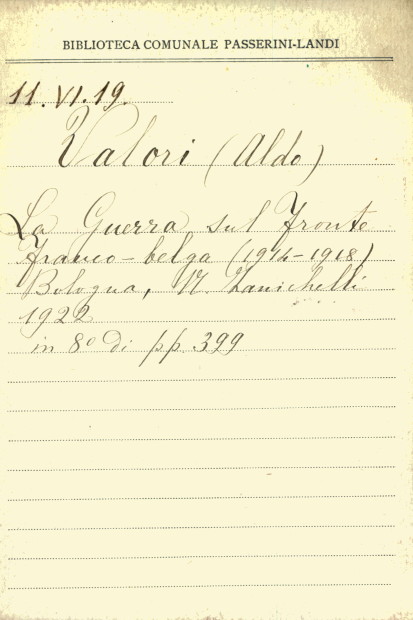 BIBLIOTECA COMUNALE PASSERINI-LANDI
11. VI. 19.
Valori (Aldo)
La Guerra sul Fronte
franco-belga (1914-1918)
Bologna, N. Zanichelli
1922
in 8º di pp. 399